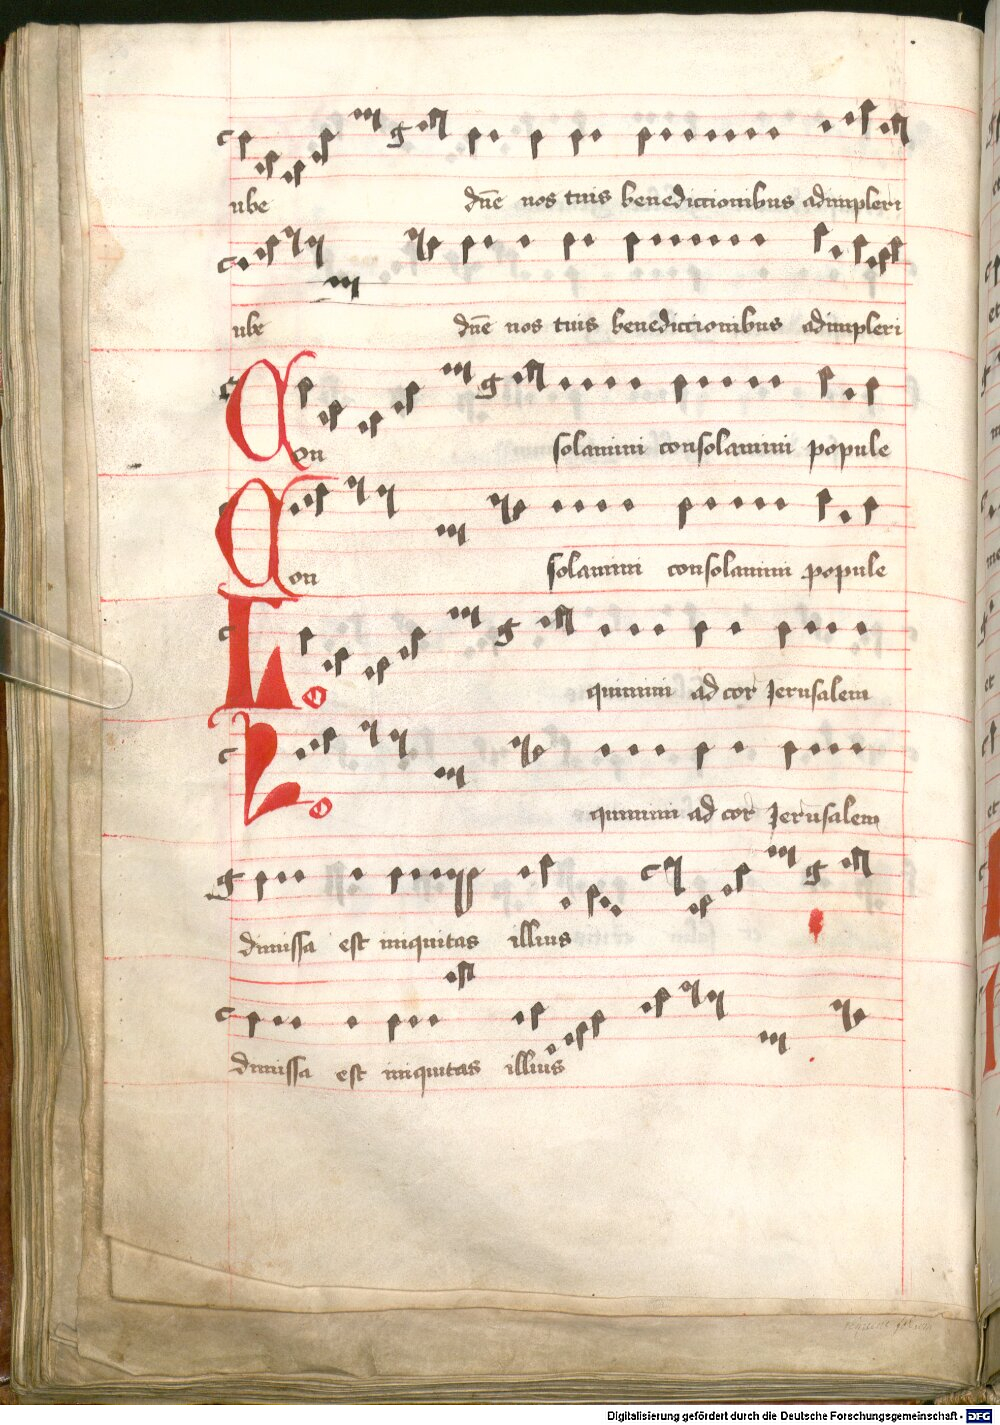 ube dn̄e nos tuis benediccionibus adimpleri
ube dn̄e nos tuis benediccionibus adimpleri
Con solamini consolamini popule
Con solamini consolamini popule
Lo quimini ad cor Jerusalem
Lo quimini ad cor Jerusalem
dimissa est iniquitas illius
dimissa est iniquitas illius
Digitalisierung gefördert durch die Deutsche Forschungsgemeinschaft - DFG